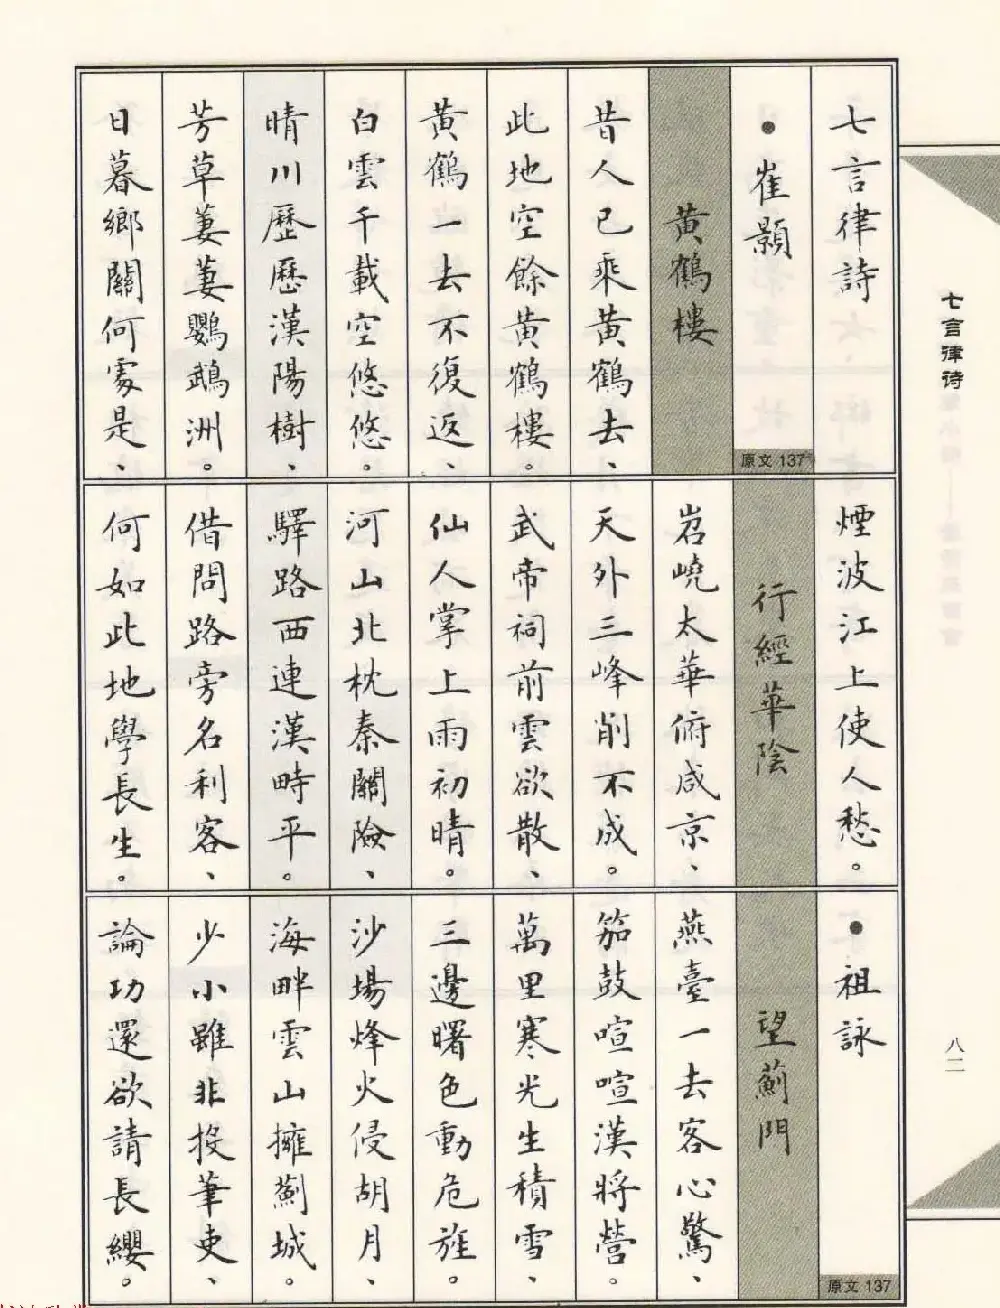 七言律詩
•崔顥
原文137
黃鶴樓
昔人已乘黃鶴去、
此地空餘黃鶴樓。
黃鶴一去不復返、
白雲千載空悠悠。
晴川歷歷漢陽樹、
芳草萋萋鸚鵡洲。
日暮鄉關何處是、
煙波江上使人愁。
行經華陰
岧嶢太華俯咸京、
天外三峰削不成。
武帝祠前雲欲散、
仙人掌上雨初晴。
河山北枕秦關險、
驛路西連漢畤平。
借問路旁名利客、
何如此地學長生。
•祖詠
原文137
望薊門
燕臺一去客心驚、
笳鼓喧喧漢將營。
萬里寒光生積雪、
三邊曙色動危旌。
沙場烽火侵胡月、
海畔雲山擁薊城。
少小雖非投筆吏、
論功還欲請長纓。
七言律诗
八二